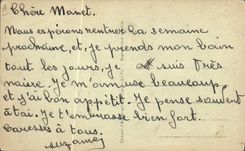 Chère Manet.
Nous espérons rentrer la semaine
prochaine, et, je prends mon bain
tout les jours, je suis très
naise. Je m'amuse beaucoup,
et j'ai bon appétit. Je pense souvent
à tai. Je t'embrasse bien fort.
Caresses à tous.